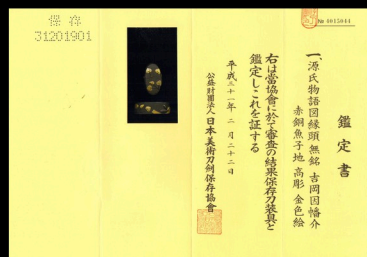 鑑定書
一、源氏物語図縁頭 無銘 吉岡因幡介
赤銅魚子地 高彫 金色絵
右は當協會に於て審査の結果保存刀装具と
鑑定しこれを証する
平成三十一年 二月二十二日
公益財團法人 日本美術刀劍保存協會
保存
31201901
№ 4015044